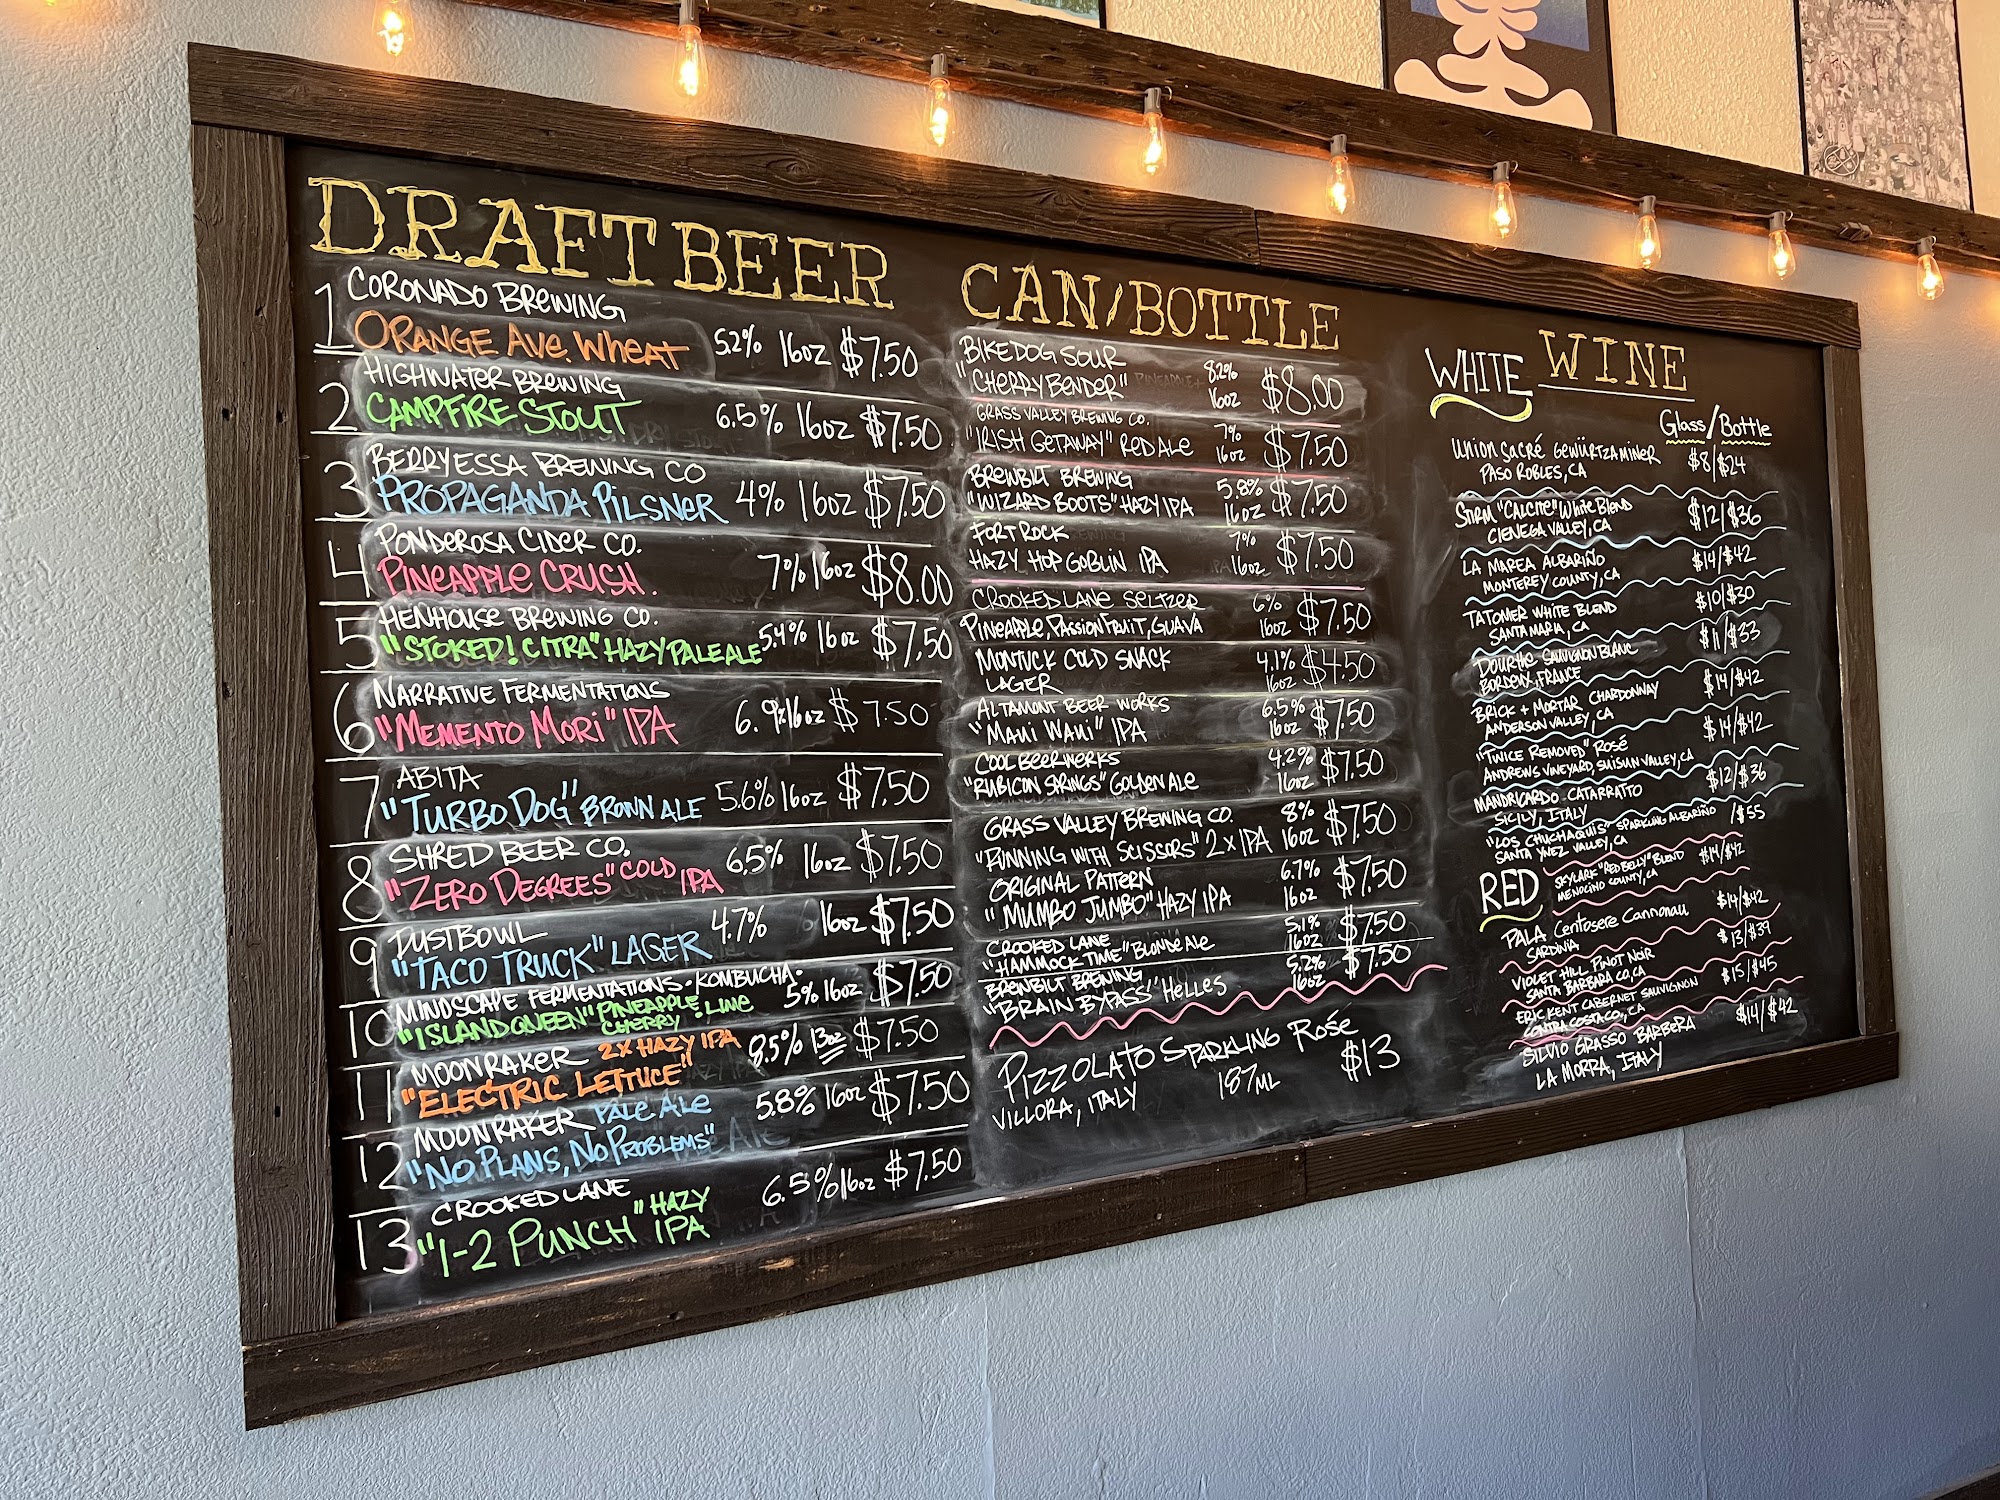 DRAFT BEER
1 CORONADO BREWING
ORANGE AVE. WHEAT 5.2% 16oz $7.50
2 HIGHWATER BREWING
CAMPFIRE STOUT 6.5% 16oz $7.50
3 BERRYESSA BREWING CO
PROPAGANDA PILSNER 4% 16oz $7.50
4 PONDEROSA CIDER CO.
PINEAPPLE CRUSH. 7% 16oz $8.00
5 HENHOUSE BREWING CO.
"STOKED! CITRA" HAZY PALE ALE 5.4% 16oz $7.50
6 NARRATIVE FERMENTATIONS
"MEMENTO MORI" IPA 6.9% 16oz $7.50
7 ABITA
"TURBO DOG" BROWN ALE 5.6% 16oz $7.50
8 SHRED BEER CO.
"ZERO DEGREES" COLD IPA 6.5% 16oz $7.50
9 DUSTBOWL
"TACO TRUCK" LAGER 4.7% 16oz $7.50
10 MINDSCAPE FERMENTATIONS - KOMBUCHA
"ISLAND QUEEN" PINEAPPLE LIME CHERRY 5% 16oz $7.50
11 MOONRAKER 2X HAZY IPA
"ELECTRIC LETTUCE" 8.5% 13oz $7.50
12 MOONRAKER PALE ALE
"NO PLANS, NO PROBLEMS" 5.8% 16oz $7.50
13 CROOKED LANE
"1-2 PUNCH" HAZY IPA 6.5% 16oz $7.50
CAN/BOTTLE
BIKE DOG SOUR
"CHERRY BENDER" 8.2% 16oz $8.00
GRASS VALLEY BREWING CO.
"IRISH GETAWAY" RED ALE 7% 16oz $7.50
BREWBILT BREWING
"WIZARD BOOTS" HAZY IPA 5.8% 16oz $7.50
FORT ROCK
HAZY HOP GOBLIN IPA 7% 16oz $7.50
CROOKED LANE SELTZER
PINEAPPLE, PASSIONFRUIT, GUAVA 6% 16oz $7.50
MONTUCK COLD SNACK
LAGER 4.1% 16oz $4.50
ALTAMONT BEER WORKS
"MAUI WAUI" IPA 6.5% 16oz $7.50
COOL BEERWERKS
"RUBICON SPRINGS" GOLDEN ALE 4.2% 16oz $7.50
GRASS VALLEY BREWING CO.
"RUNNING WITH SCISSORS" 2X IPA 8% 16oz $7.50
ORIGINAL PATTERN
"MUMBO JUMBO" HAZY IPA 6.7% 16oz $7.50
CROOKED LANE
"HAMMOCK TIME" BLONDE ALE 5.1% 16oz $7.50
BREWBILT BREWING
"BRAIN BYPASS" HELLES 5.2% 16oz $7.50
PIZZOLATO SPARKLING ROSÉ
VILLORA, ITALY 187ML $13
WINE
WHITE
Glass/Bottle
UNION SACRÉ GEWÜRTZAMINER
PASO ROBLES, CA $8/$24
STIRM "CALCITE" WHITE BLEND
CIENEGA VALLEY, CA $12/$36
LA MAREA ALBARIÑO
MONTEREY COUNTY, CA $14/$42
TATOMER WHITE BLEND
SANTA MARIA, CA $10/$30
DOURTHE SAUVIGNON BLANC
BORDEUX, FRANCE $11/$33
BRICK + MORTAR CHARDONNAY
ANDERSON VALLEY, CA $14/$42
"TWICE REMOVED" ROSÉ
ANDREWS VINEYARD, SUISUN VALLEY, CA $14/$42
MANDRICARDO CATARRATTO
SICILY, ITALY $12/$36
"LOS CHUCHAQUIS" SPARKLING ALBARIÑO
SANTA YNEZ VALLEY, CA /$55
RED
SKYLARK "RED BELLY" BLEND
MENOCINO COUNTY, CA $14/$42
PALA Centosere Cannonau
SARDINIA $14/$42
VIOLET HILL PINOT NOIR
SANTA BARBARA CO, CA $13/$39
ERIC KENT CABERNET SAUVIGNON
CONTRA COSTA CO., CA $15/$45
SILVIO GRASSO BARBERA
LA MORRA, ITALY $14/$42